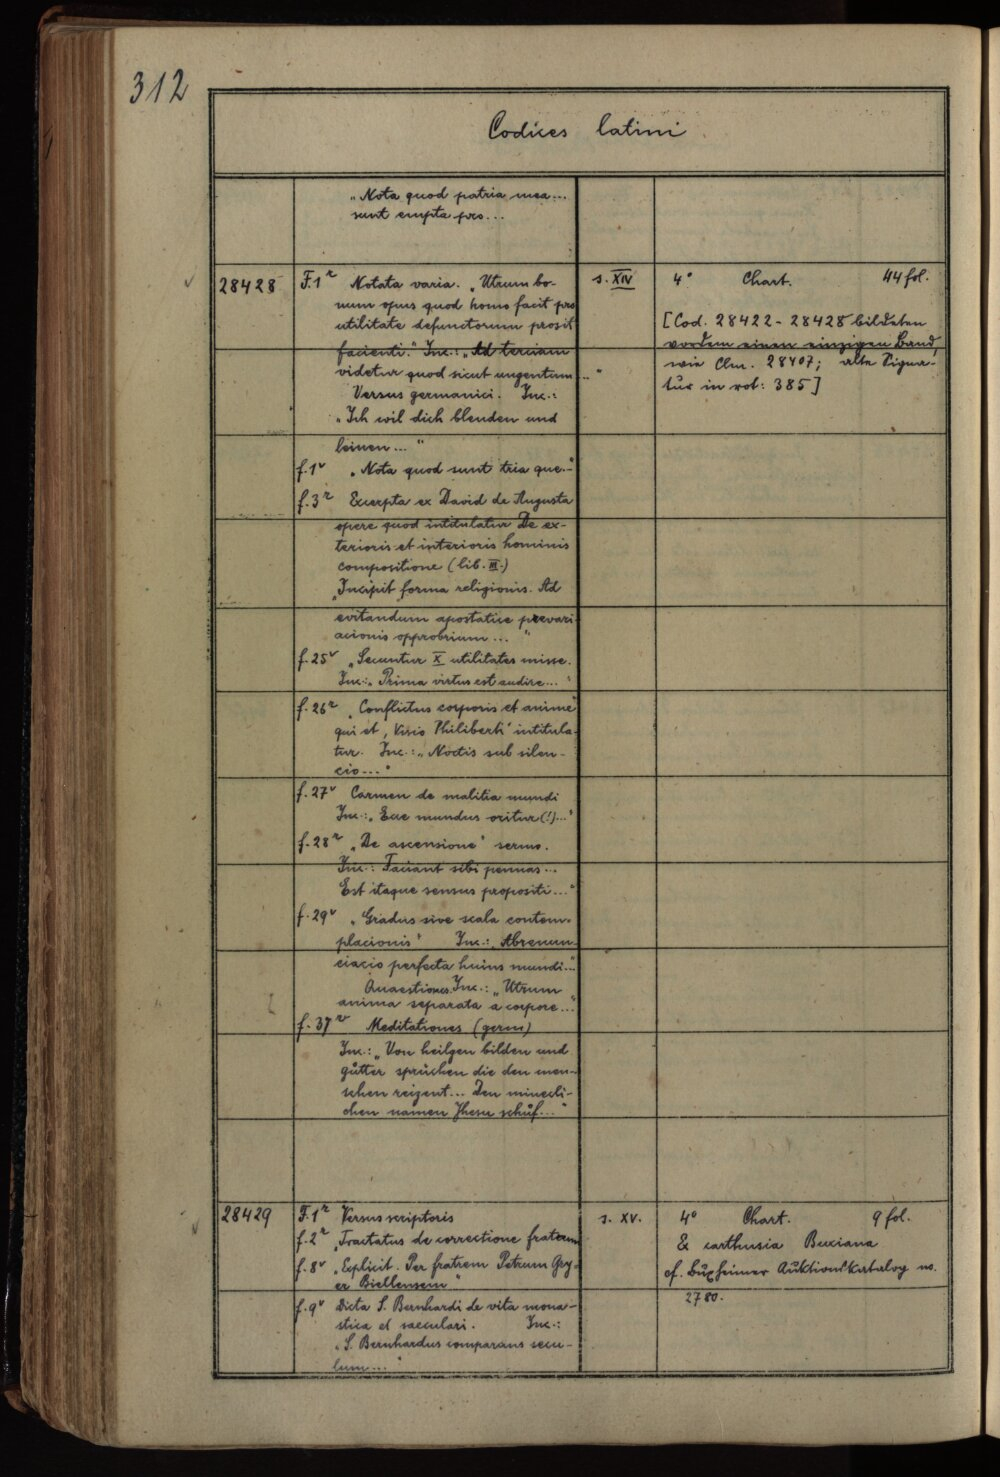 312
Codices latini
„Nota quod patria mea...
sunt empta pro...
28428 F.1r Notata varia. „Utrum bo-
num opus quod homo facit pro
utilitate defunctorum prosit
facienti.“ Inc.: „Ad terciam
videtur quod sicut ungentum ..“
Versus germanici. Inc.:
„Ich wil dich blenden und
leinen...“
f.1v „Nota quod sunt tria que..“
f.3r Excerpta ex David de Augusta
opere quod intitulatur De ex-
terioris et interioris hominis
compositione (lib. III.)
„Incipit forma religionis. Ad
evitandum apostatice prevari
acionis opprobrium...“
f.25v „Secuntur X utilitates misse.
Inc.: „Prima virtus est audire...“
f.26r „Conflictus corporis et anime“
qui et ‚Visio Philiberti‘ intitula-
tur. Inc.: „Noctis sub silen-
cio...“
f.27v Carmen de malitia mundi
Inc.: „Ecce mundus oritur(!)...“
f.28r „De ascensione“ sermo.
Inc.: Faciant sibi pennas...
Est itaque sensus propositi...“
f.29v „Gradus sive scala contem-
placionis“ Inc.: „Abrenun-
ciacio perfecta huius mundi..“
Quaestiones. Inc.: „Utrum
anima separata a corpore...“
f.37r Meditationes (germ)
Inc.: „Von heilgen bilden und
gůtter sprüchen die den men-
schen reizent... Den minecli-
chen namen Jhesu schůf...“
s. XIV
4° Chart. 44 fol.
[Cod. 28422-28428 bildeten
vordem einen einzigen Band,
wie Clm. 28407; alte Signa-
tur in rot: 385]
28429 F.1r Versus scriptoris
f.2r „Tractatus de correctione fratrum
f.8v „Explicit. Per fratrem Petrum Gey-
er Biellensem“
f.9v Dicta S. Bernhardi de vita mona-
stica et saeculari. Inc.:
„S. Bernhardus comparans secu-
lum...“
s. XV.
4° Chart. 9 fol.
E carthusia Buxiana
cf. Buxheimer Auktionskatalog no.
2780.